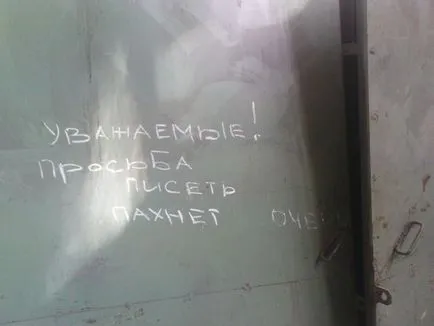 УВАЖАЕМЫЕ!
ПРОСЮБА
ПИСЕТЬ
ПАХНЕТ